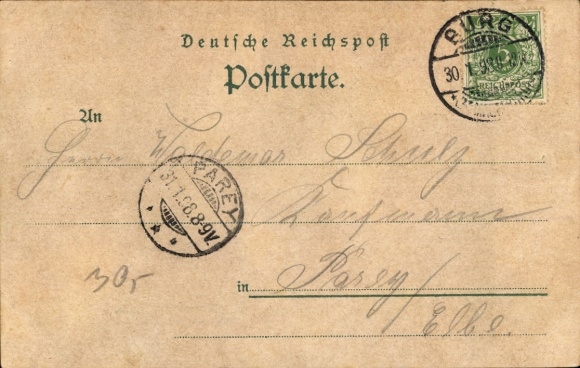 Deutsche Reichspost
Postkarte.
BURG
30.1.98
An
Herrn Waldemar Schulz
PAREY
31.1.98.8-9V.
Kaufmann
305
in Parey/
Elbe.